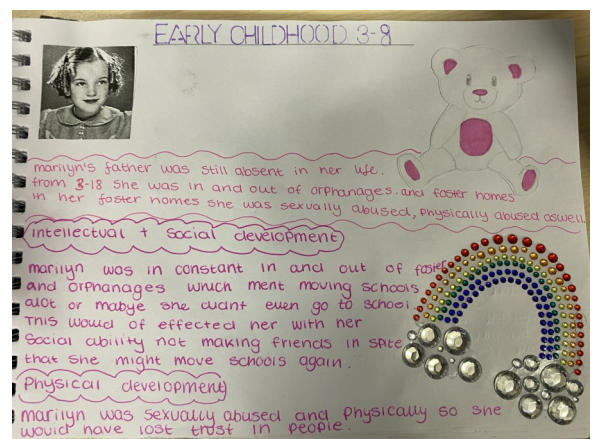 EARLY CHILDHOOD 3-8
marilyn's father was still absent in her life.
from 3-18 she was in and out of orphanages. and foster homes
in her foster homes she was sexually abused, physically abused aswell.
intellectual + social development
marilyn was in constant in and out of foster
and orphanages which ment moving schools
alot or mabye she didnt even go to school.
This would of effected her with her
social ability not making friends in spite
that she might move schools again.
Physical development
marilyn was sexually abused and physically so she
would have lost trust in people.